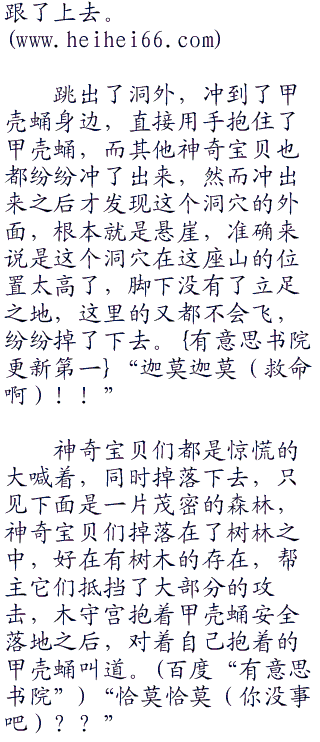 跟了上去。
(www.heihei66.com)
跳出了洞外，冲到了甲
壳蛹身边，直接用手抱住了
甲壳蛹，而其他神奇宝贝也
都纷纷冲了出来，然而冲出
来之后才发现这个洞穴的外
面，根本就是悬崖，准确来
说是这个洞穴在这座山的位
置太高了，脚下没有了立足
之地，这里的又都不会飞，
纷纷掉了下去。{有意思书院
更新第一}“迦莫迦莫（救命
啊）！！”
神奇宝贝们都是惊慌的
大喊着，同时掉落下去，只
见下面是一片茂密的森林，
神奇宝贝们掉落在了树林之
中，好在有树木的存在，帮
主它们抵挡了大部分的攻
击，木守宫抱着甲壳蛹安全
落地之后，对着自己抱着的
甲壳蛹叫道。(百度“有意思
书院”)“恰莫恰莫（你没事
吧）？？”